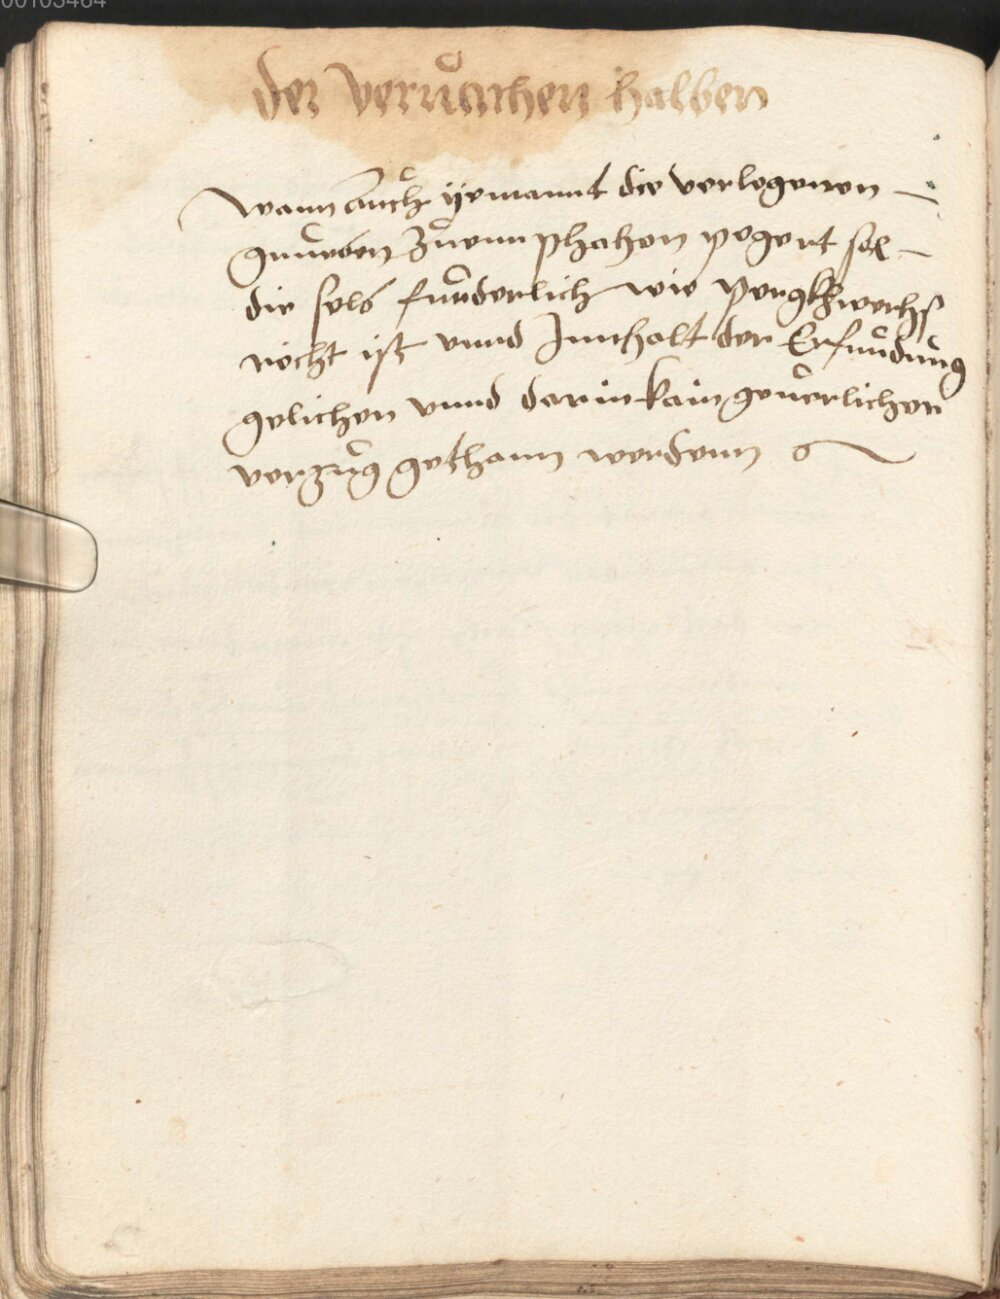 00103464
der verůchen halben
Wann Aůch yemannt die verlegenen
grůeben zůemphahen pegert sol
die selb fůrderlich wie pergkhwerchs
recht ist vnnd Innhalt der Erfindůng
gelichen vnnd darin kain geůerlicher
verzůg gethann werdenn